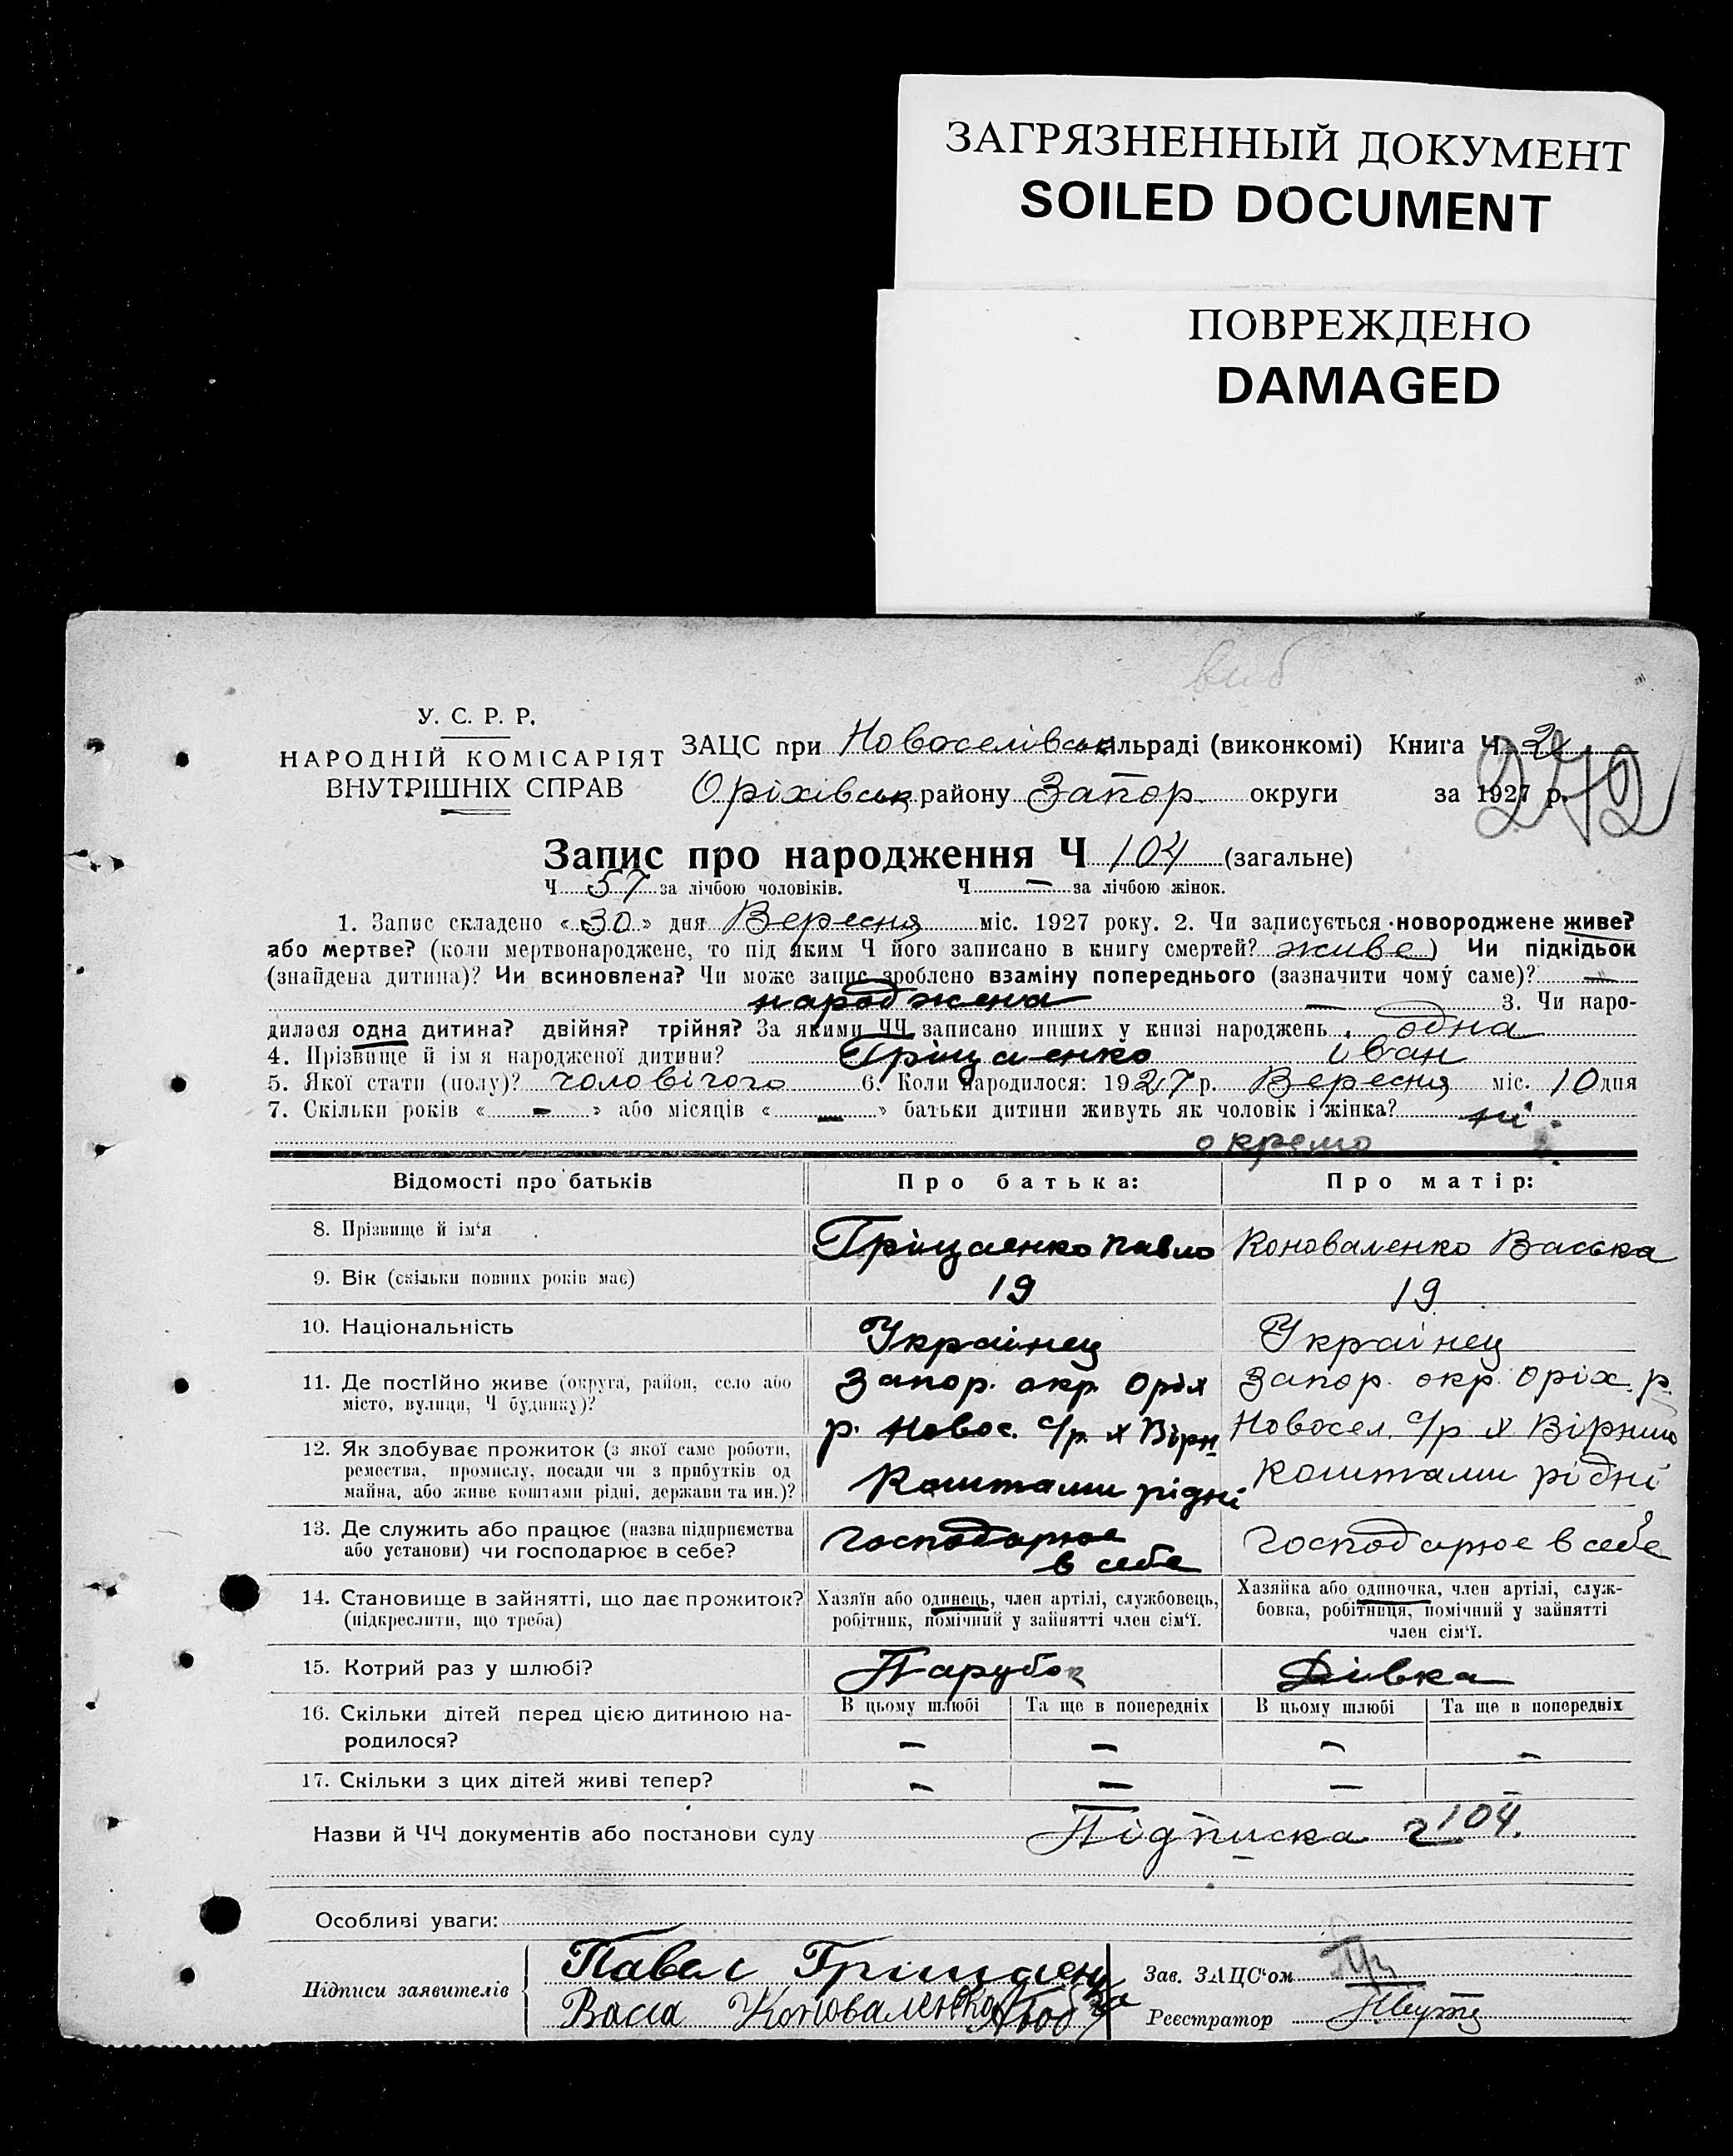 ЗАГРЯЗНЕННЫЙ ДОКУМЕНТ
SOILED DOCUMENT
ПОВРЕЖДЕНО
DAMAGED
виб
У. С. Р. Р.
НАРОДНІЙ КОМІСАРІЯТ
ВНУТРІШНІХ СПРАВ
ЗАЦС при Новоселівськ ільраді (виконкомі) Книга Ч 2
272
Оріхівськ району Запор. округи за 1927 р.
Запис про народження Ч 104 (загальне)
Ч 57 за лічбою чоловіків. Ч — за лічбою жінок.
1. Запис складено «30» дня Вересня міс. 1927 року. 2. Чи записується новороджене живе?
або мертве? (коли мертвонароджене, то під яким Ч його записано в книгу смертей? живе) Чи підкідьок
(знайдена дитина)? Чи всиновлена? Чи може запис зроблено взаміну попереднього (зазначити чому саме)? —
народжена — 3. Чи наро-
дилася одна дитина? двійня? трійня? За якими ЧЧ записано инших у книзі народжень одна
4. Прізвище й ім я народженої дитини? Гріцаенко іван
5. Якої стати (полу)? чоловічого 6. Коли народилося: 1927 р. Вересня міс. 10 дня
7. Скільки років « — » або місяців « — » батьки дитини живуть як чоловік і жінка? ні
окремо
Відомості про батьків Про батька: Про матір:
8. Прізвище й ім'я Гріцаенко Павло Коноваленко Васька
9. Вік (скільки повних років має) 19 19
10. Національність Украінец Украінец
11. Де постійно живе (округа, район, село або Запор. окр. Оріх Запор. окр. Оріх. р.
місто, вулиця, Ч будинку)? р. Новос. с/р. х Вірн Новосел. с/р х Вірний
12. Як здобуває прожиток (з якої саме роботи,
ремества, промислу, посади чи з прибутків од Коштами рідні Коштами рідні
майна, або живе коштами рідні, держави та ин.)?
13. Де служить або працює (назва підприємства Господарює Господарює в себе
або установи) чи господарює в себе? в себе
14. Становище в зайнятті, що дає прожиток? Хазяїн або одинець, член артілі, службовець, Хазяйка або одиночка, член артілі, служ-
(підкреслити, що треба) робітник, помічний у зайнятті член сім'ї. бовка, робітниця, помічний у зайнятті
член сім'ї.
15. Котрий раз у шлюбі? Парубок Дівка
16. Скільки дітей перед цією дитиною на- В цьому шлюбі Та ще в попередніх В цьому шлюбі Та ще в попередніх
родилося? — — — —
17. Скільки з цих дітей живі тепер? — — —
Назви й ЧЧ документів або постанови суду Підписка ч 104.
Особливі уваги:
Підписи заявителів Павел Грицаенк Зав. ЗАЦС'ом
Васса Коноваленко Реєстратор